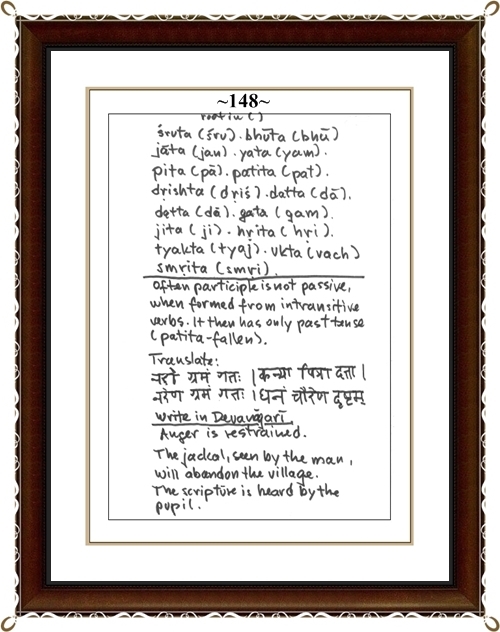 ~148~
śruta (śru). bhūta (bhū)
jāta (jan). yata (yam).
pita (pā). patita (pat).
dṛishta (dṛiś). datta (dā).
detta (dā). gata (gam).
jita (ji). hṛita (hṛi).
tyakta (tyaj). ukta (vach)
smṛita (smṛi).
Often participle is not passive,
when formed from intransitive
verbs. It then has only past tense
(patita-fallen).
Translate:
नरो ग्रमं गतः । कन्या पित्रा दत्ता ।
नरेण ग्रमं गतः । धनं चौरेण दृष्टम्
Write in Devanāgarī.
Anger is restrained.
The jackal, seen by the man,
will abandon the village.
The scripture is heard by the
pupil.